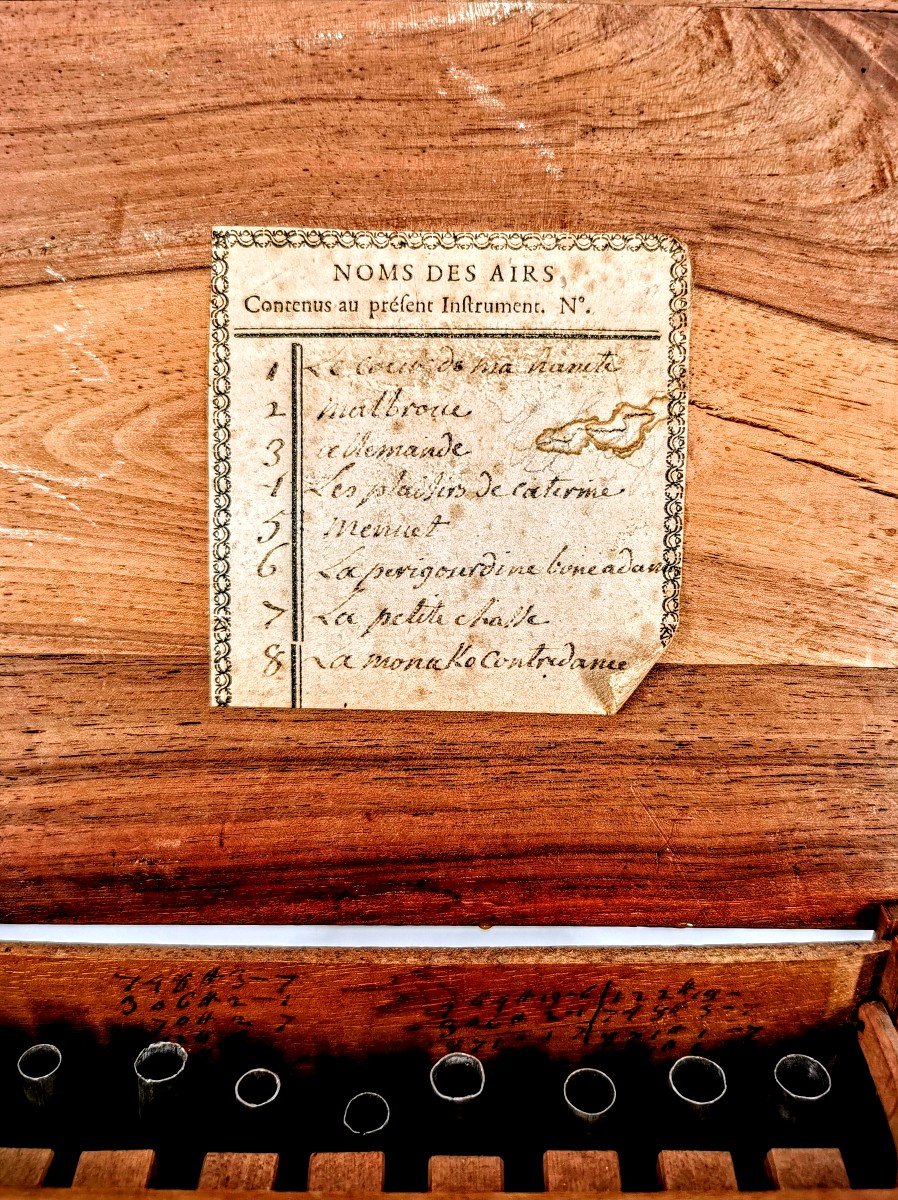 NOMS DES AIRS,
Contenus au préſent Inſtrument. N°.
1 Le coeur de ma nanete
2 malbroue
3 allemande
4 Les plaisirs de caterine
5 Menuet
6 La perigourdine bone a dan
7 La petite chasse
8 La monako contredance